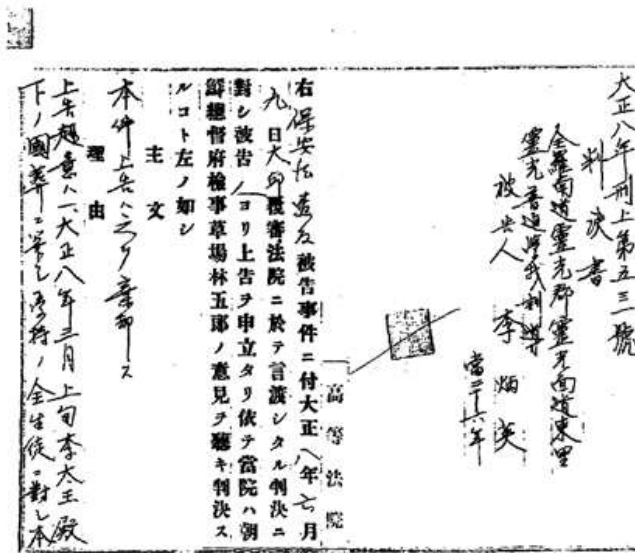 大正八年刑上第五三號
判決書
全羅南道靈光郡靈光面道東里
靈光普通學校訓導
被告人 李炳英
當二十六年
高等法院
右保安法違反被告事件ニ付大正八年七月
九日大邱覆審法院ニ於テ言渡シタル判決ニ
對シ被告ノヨリ上告ヲ申立タリ依テ當院ハ朝
鮮總督府檢事草場林五郎ノ意見ヲ聽キ判決ス
ルコト左ノ如シ
主文
本件上告ハ之ヲ棄却ス
理由
上告趣意ハ一、大正八年三月上旬李太王殿
下ノ國葬ニ際シ當時ノ全生徒ニ對シ本